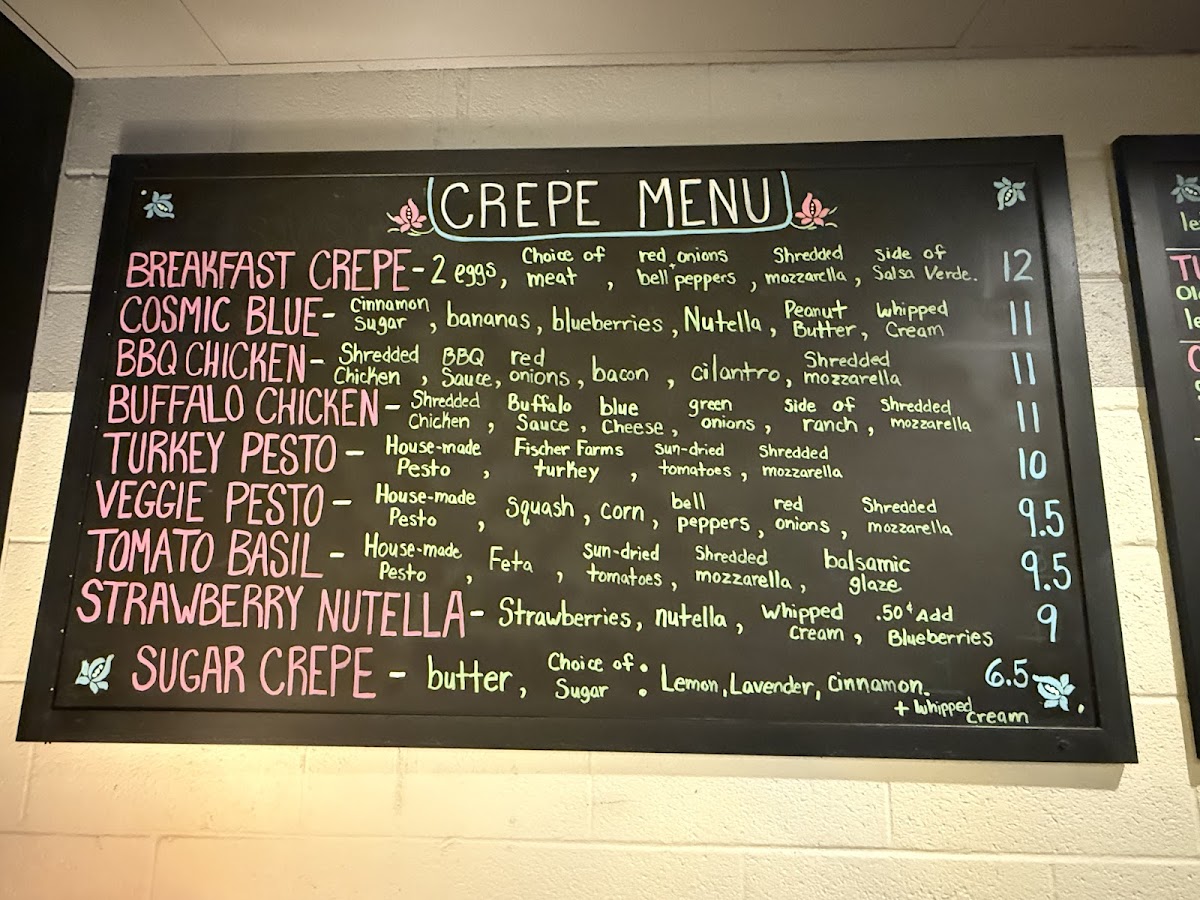 CREPE MENU
BREAKFAST CREPE - 2 eggs, Choice of meat, red onions + bell peppers, Shredded mozzarella, side of Salsa Verde. 12
COSMIC BLUE - Cinnamon Sugar, bananas, blueberries, Nutella, Peanut Butter, Whipped Cream 11
BBQ CHICKEN - Shredded Chicken, BBQ Sauce, red onions, bacon, cilantro, Shredded mozzarella 11
BUFFALO CHICKEN - Shredded Chicken, Buffalo Sauce, blue Cheese, green onions, side of ranch, Shredded mozzarella 11
TURKEY PESTO - House-made Pesto, Fischer Farms turkey, sun-dried tomatoes, Shredded mozzarella 10
VEGGIE PESTO - House-made Pesto, Squash, corn, bell peppers, red onions, Shredded mozzarella 9.5
TOMATO BASIL - House-made Pesto, Feta, sun-dried tomatoes, Shredded mozzarella, balsamic glaze 9.5
STRAWBERRY NUTELLA - Strawberries, nutella, Whipped Cream, .50¢ Add Blueberries 9
SUGAR CREPE - butter, Choice of Sugar: Lemon, Lavender, Cinnamon. + Whipped Cream 6.5